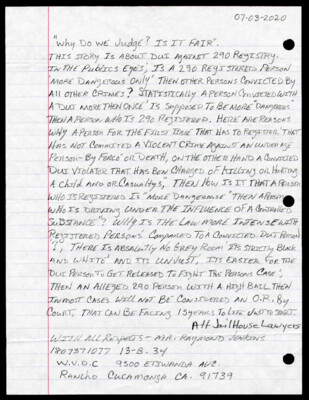 07-03-2020
"Why Do WE Judge? IS IT FAIR".
THIS STORY IS ABOUT DUI AGAINST 290 REGISTRY.
IN THE PUBLICS EYES, IS A 290 REGISTERED PERSON
MORE DANGEROUS ONLY" THEN OTHER PERSONS CONVICTED BY
All OTHER CRIMES? STATISTICALLY A PERSON CONVICTED WITH
A DUI MORE THEN ONCE' IS SUPPOSED TO BE MORE "DANGEROUS"
THEN A PERSON WHO IS 290 REGISTERED. HERE ARE REASONS
WHY A PERSON FOR THE FIRST TIME THAT HAS TO REGISTER THAT
HAS NOT COMMITED A VIOLENT CRIME AGAINST AN UNDER AGE
PERSON - BY FORCE OR DEATH, ON THE OTHER HAND A CONVICTED
DUI VIOLATER THAT HAS BEN CHARGED OF KILLING OR HURTING
A Child AND OR CASUALTYS, THEN HOW IS IT THAT A PERSON
WHO IS REGISTERED IS "MORE DANGEROUSE" THEN A PERSON
WHO IS DRIVING UNDER THE INFLUENCE OF A CONTROLLED
SUBSTANCE"? WHY IS THE LAW MORE INTENSE WITH
REGISTERED PERSONS' COMPARED TO A CONVICTED DUI PERSON
THERE IS ABSALUTLY NO GREY ROOM ITS STRICTLY BLACK
AND WHITE' AND ITS UNJUST, IT'S EASIER FOR THE
DUI PERSON TO GET RELEASED TO FIGHT THE PERSONS CASE',
THEN AN ALLEGED 290 PERSON WITH A HIGH BAIL, THEN
IN MOST CASES WILL NOT BE' CONSIDERED AN O.R. BY
COURT, THAT CAN BE FACING 15 YEARS TO LIFE JUST TO START.
Att JailHouse Lawyers
WITH All RESPECTS - MR: RAYMOND JENKINS
1807371077 13-8-34
W.V.D.C 9500 ETIWANDA AVE.
RANCHO CUCAMONGA CA. 91739